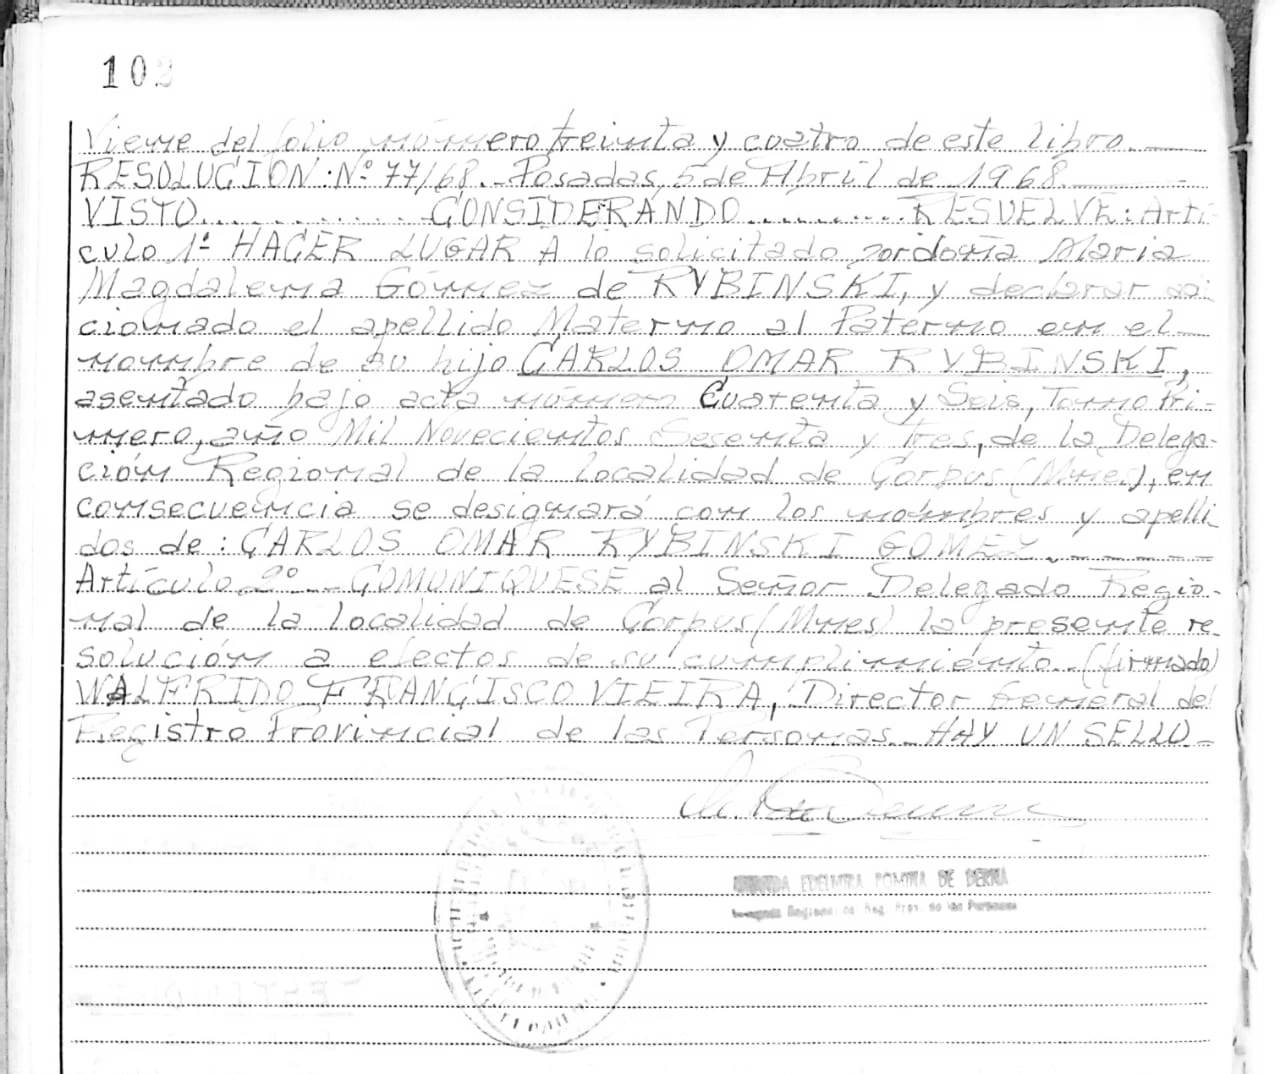 102
Viene del folio número treinta y cuatro de este libro.
RESOLUCION: Nº 77/68. Posadas, 5 de Abril de 1968.
VISTO............ CONSIDERANDO.......... RESUELVE: Arti-
culo 1º HACER LUGAR A lo solicitado por doña Maria
Magdalena Gómez de RYBINSKI, y declarar adi
cionado el apellido Materno al Paterno en el
nombre de su hijo CARLOS OMAR RYBINSKI,
asentado bajo acta número Cuarenta y Seis, Tomo Pri-
mero, año Mil Novecientos Sesenta y tres, de la Delega-
ción Regional de la localidad de Corpus (Mnes), en
consecuencia se designará con los nombres y apelli
dos de: CARLOS OMAR RYBINSKI GOMEZ.
Artículo 2º COMUNIQUESE al Señor Delegado Regio-
nal de la localidad de Corpus (Mnes) la presente re-
solución a efectos de su cumplimiento. (firmado)
WALFRIDO FRANCISCO VIEIRA, Director General del
Registro Provincial de las Personas. HAY UN SELLO-
EDELMIRA ROMINA DE BERNA
Reg. Prov. de las Personas